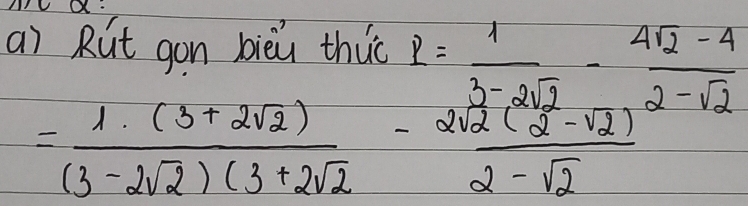 a) Rút gọn biểu thức P = 1/(3 - 2√2) - (4√2 - 4)/(2 - √2)
= (1 . (3 + 2√2))/((3 - 2√2) (3 + 2√2) - (2√2 (2 - √2))/(2 - √2)